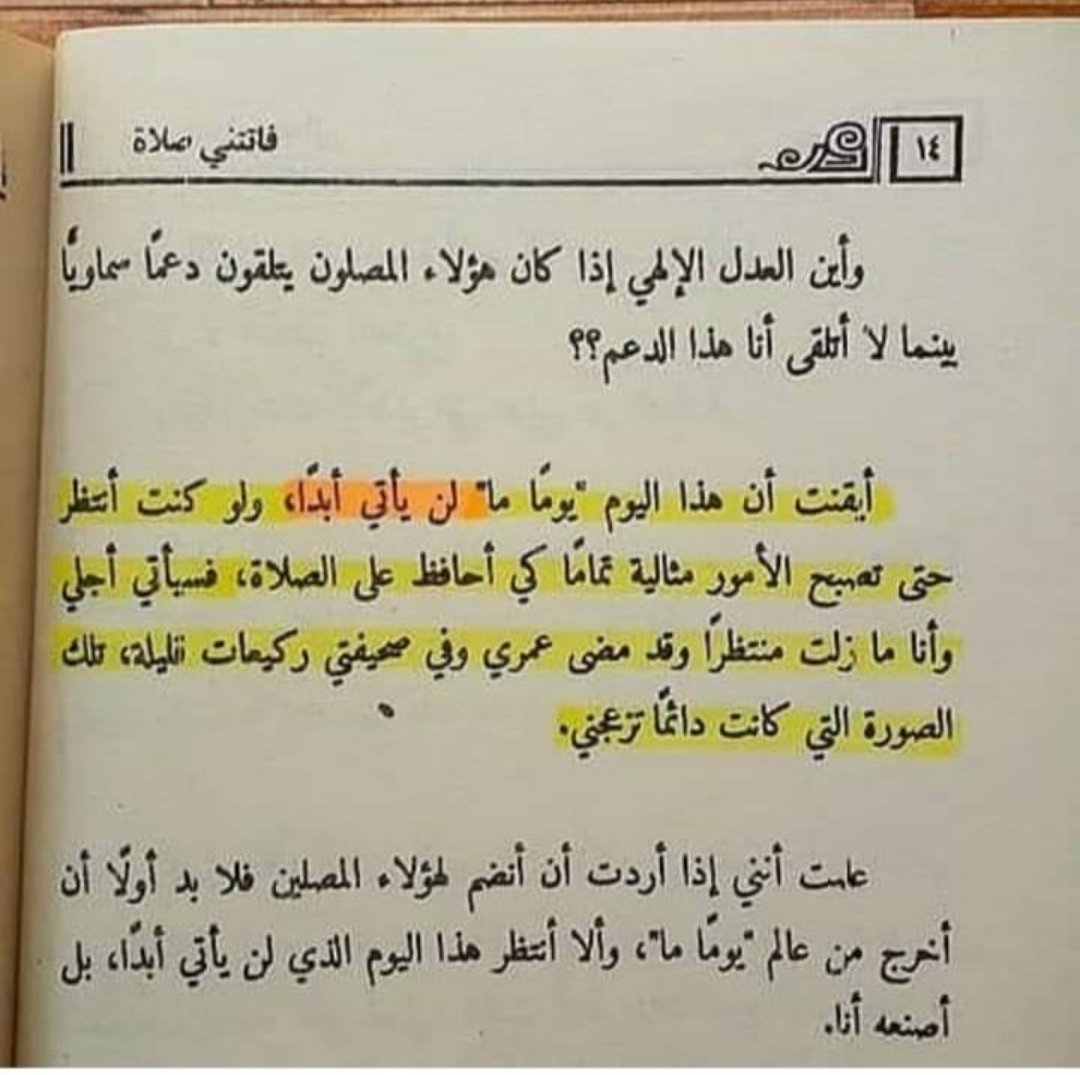 ١٤
فاتتني صلاة
وأين العدل الإلهي إذا كان هؤلاء المصلون يتلقون دعمًا سماويًّا
بينما لا أتلقى أنا هذا الدعم؟؟
أيقنت أن هذا اليوم "يومًا ما" لن يأتي أبدًا، ولو كنت أنتظر
حتى تصبح الأمور مثالية تمامًا كي أحافظ على الصلاة، فسيأتي أجلي
وأنا ما زلت منتظرًا وقد مضى عمري وفي صحيفتي ركيعات قليلة، تلك
الصورة التي كانت دائمًا تزعجني.
علمت أنني إذا أردت أن أنضم لهؤلاء المصلين فلا بد أولًا أن
أخرج من عالم "يومًا ما"، وألا أنتظر هذا اليوم الذي لن يأتي أبدًا، بل
أصنعه أنا.